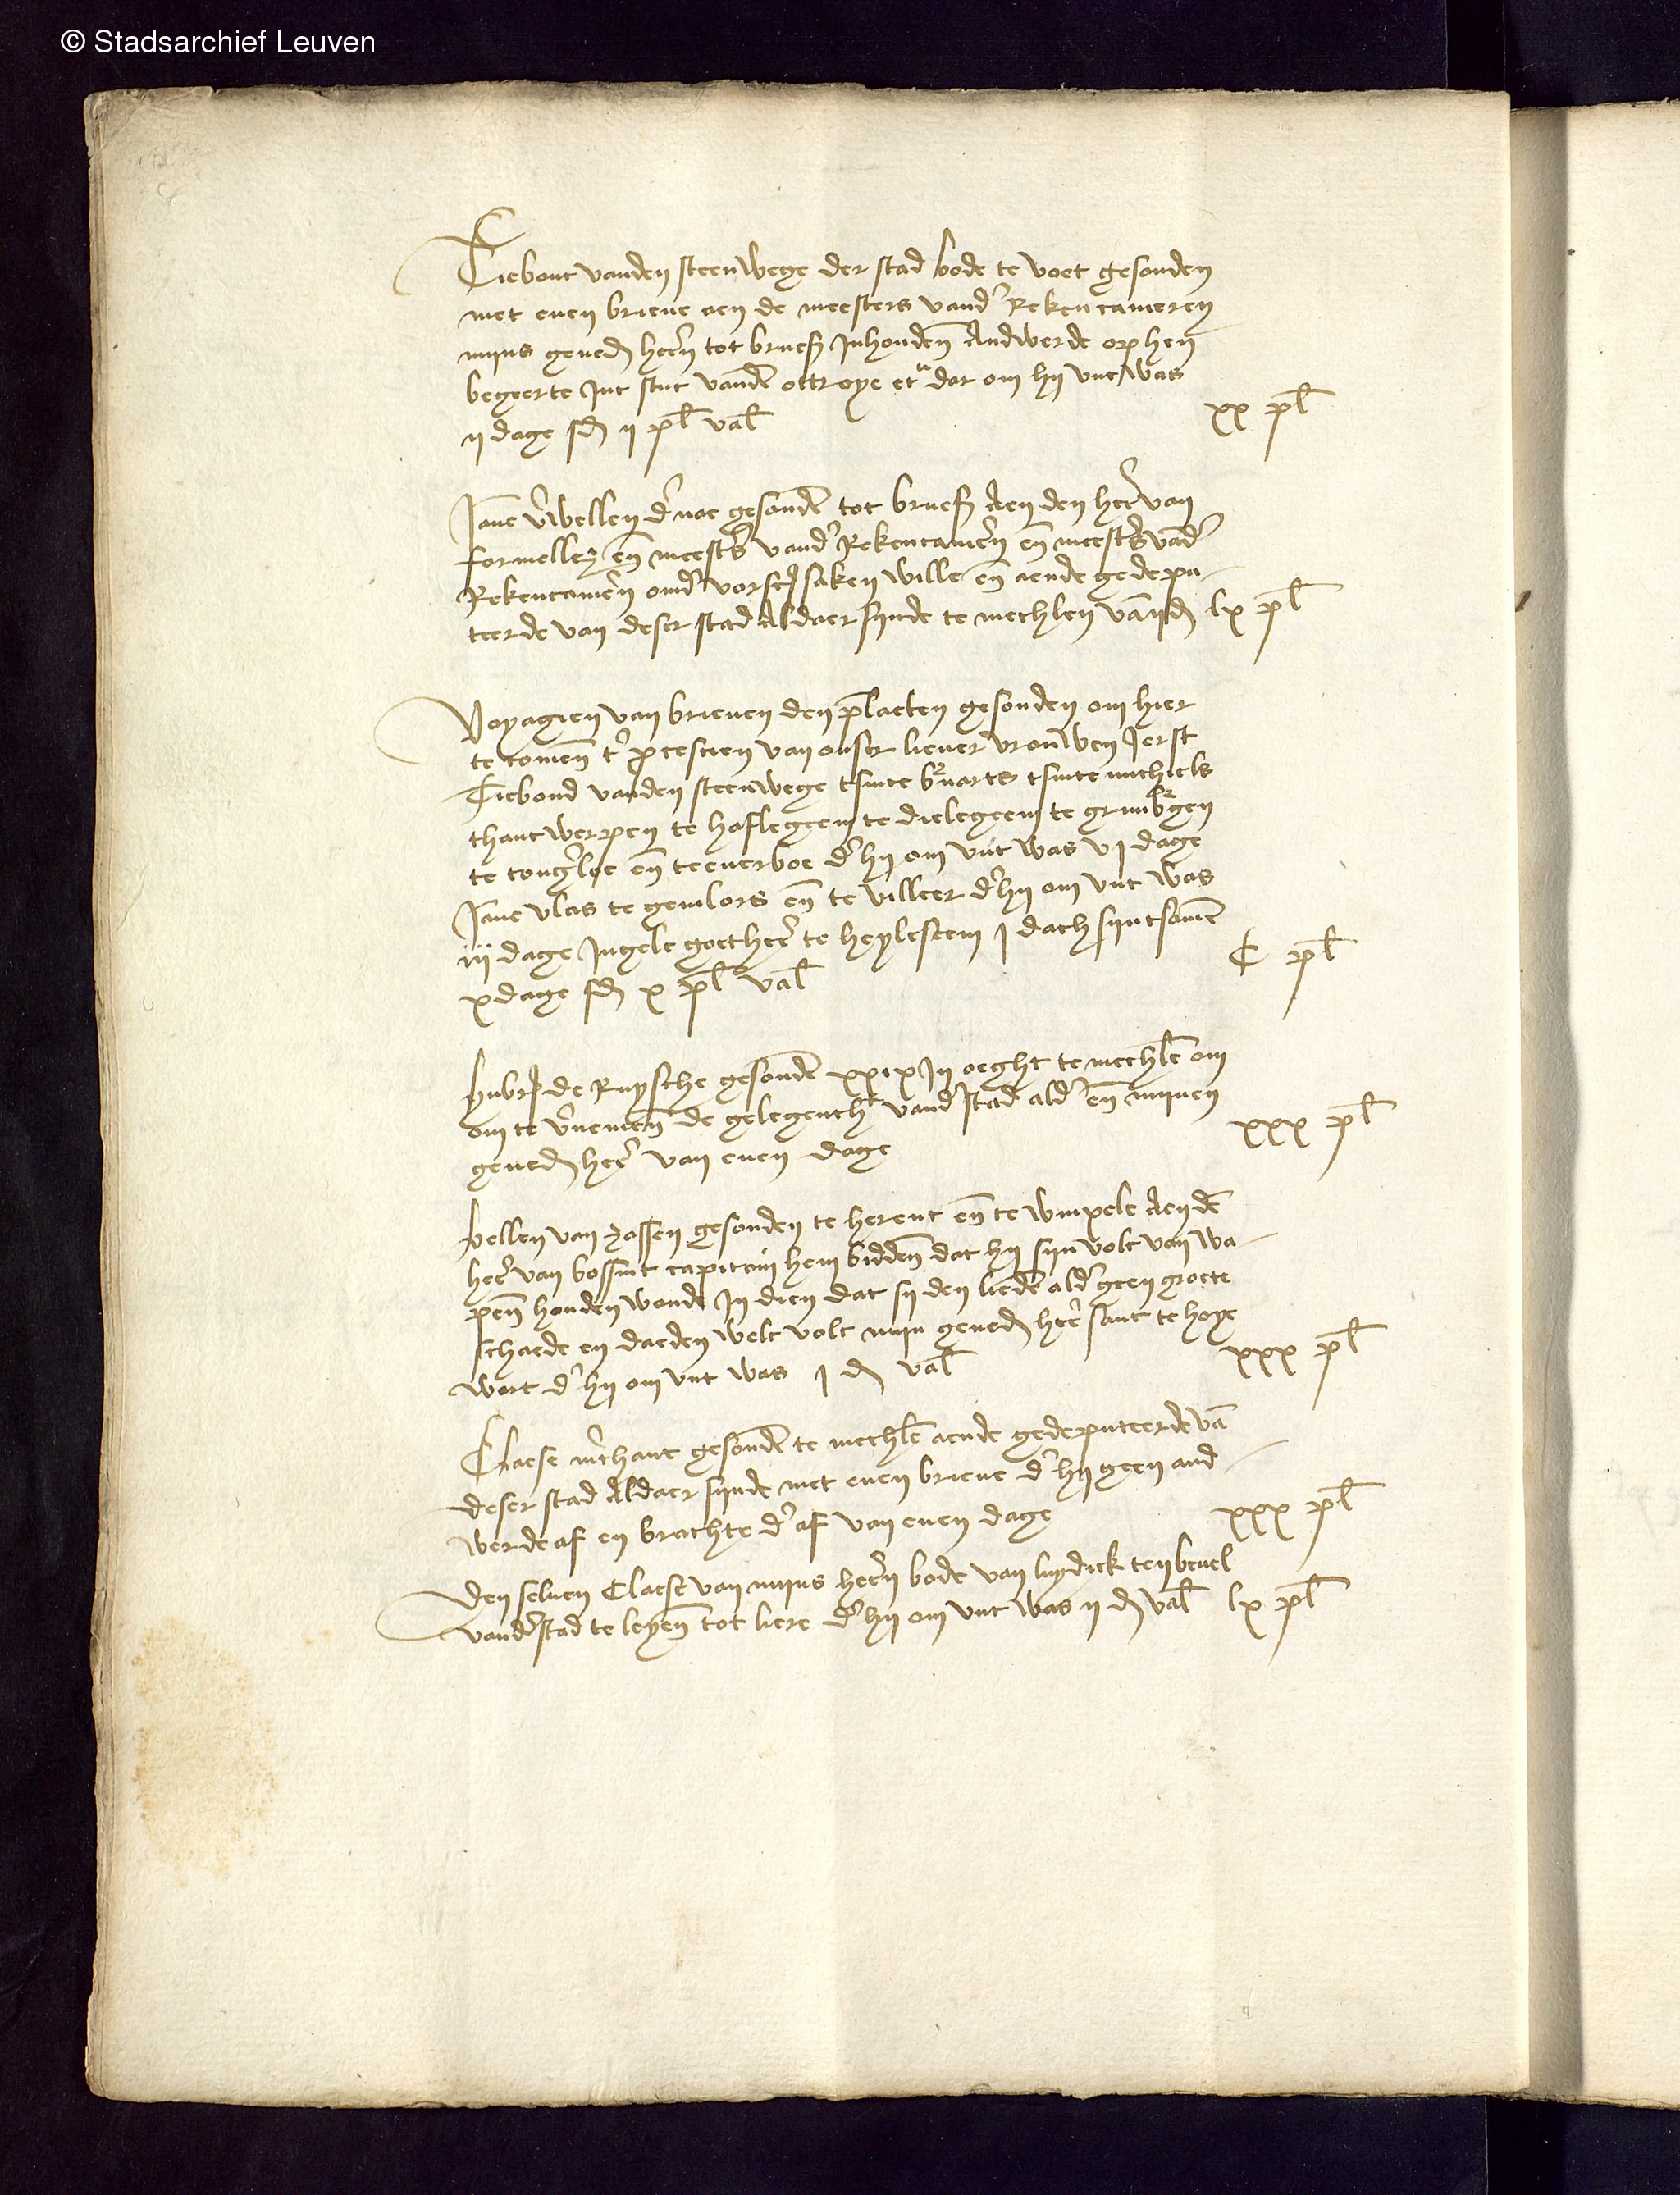 © Stadsarchief Leuven
Tiebout vanden steenwege der stad bode te voet gesonden
met enen brieve aen de meesters vand' Rekencameren
mijns gened heren tot bruesß Inhouden Andwerde op hen
begeerte Int stuc vanden ottroye etc dar om hij uut was
ij dage sd ij pl val xx pl
Jane v'wellen d' nae gesonden tot bruesß Aen den heer van
formellez en meest's vand' Rekencamern en meest's vand'
Rekencamern omd' vorscr saken wille en aende gedepu
teerde van deser stad Aldaer sijnde te mechlen van ij d lx pl
Voyagien van brieven den plaeten gesonden om hier
te comen t' pcessien van onser liever vrouwen Ierst
Tiebond vanden steenwege tsinte b'naerts tsinte michiels
thantwerpen te haflegeem te dielegeem te grimb'gen
te tong'loe en teeverboe d' hij om uut was vj dage
Jane vlas te gemlors en te villeer d' hij om uut was
iij dage Ingele goetheer te heylesem j dach sijnt samen
x dage sd x pl val C pl
hubr de Ruyssche gesonden xxix In oeght te mechlen om
om te v'nemen de gelegenth vand' stad ald' en mijnen
gened heer van enen dage xxx pl
bellen van zassen gesonden te herent en te winxele Aen den
heer van bossuut capitein hem bidden dat hij sijn volc van wa
pen houden woude In dien dat sij den lieden ald' geen groete
schaede en daeden welc volc mijn gened heer sant te hoye
wart d' hij om uut was j d val xxx pl
Claese m'chant gesonden te mechlen aende gedeputeerde van
deser stad Aldaer sijnde met enen brieve d' hij geen and
werde af en brachte d' af van enen dage xxx pl
Den selven Claese van mijns heren bode van luydick ten bevel
vand' stad te leyen tot liere d' hij om uut was ij d val lx pl